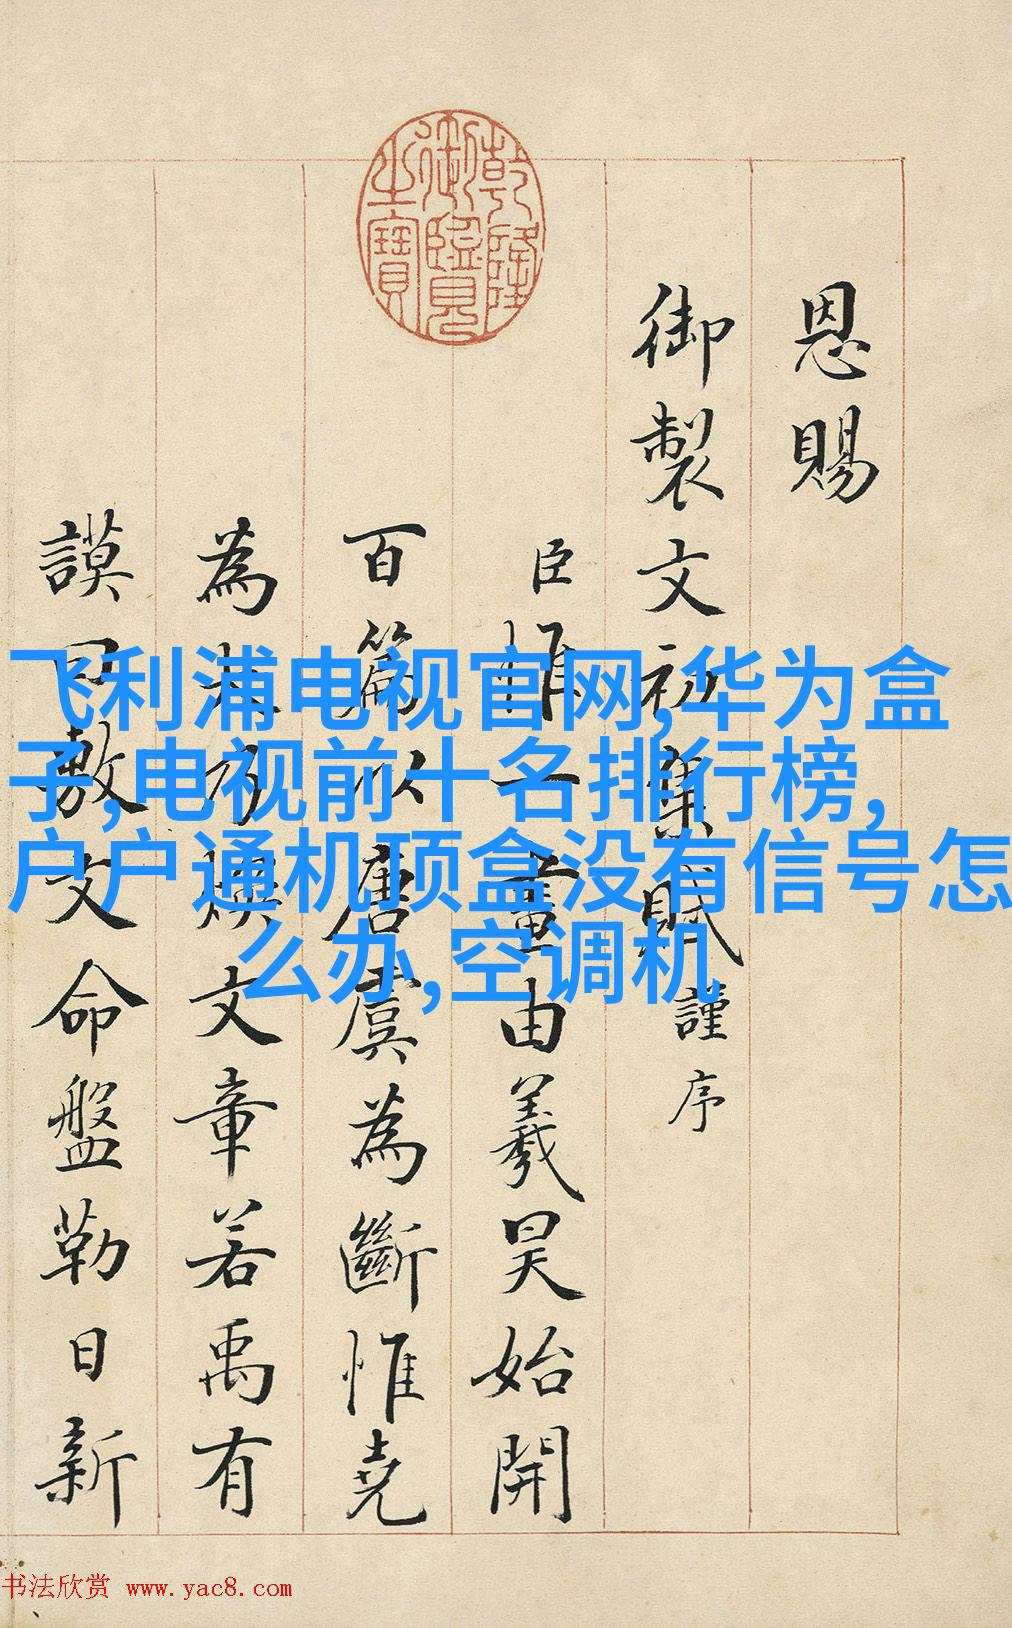 乾隆
御覽
之寶
恩賜
御製文初集賦謹序
臣惟一畫由羲昊始開
百篇以唐虞為斷惟堯
為大乃煥文章若禹有
謨曰敷文命盤勒日新
飞利浦电视官网,华为盒
子,电视前十名排行榜,
户户通机顶盒没有信号怎
么办,空调机
书法欣赏 www.yac8.com